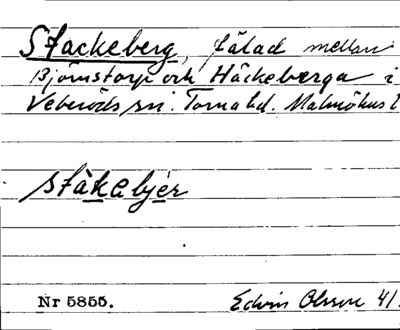 Stackeberg, fälad mellan
Björnstorp och Häckeberga i
Veberöds sn. Torna hd. Malmöhus l
ståkebjer
Nr 5855. Edvin Olsson 41